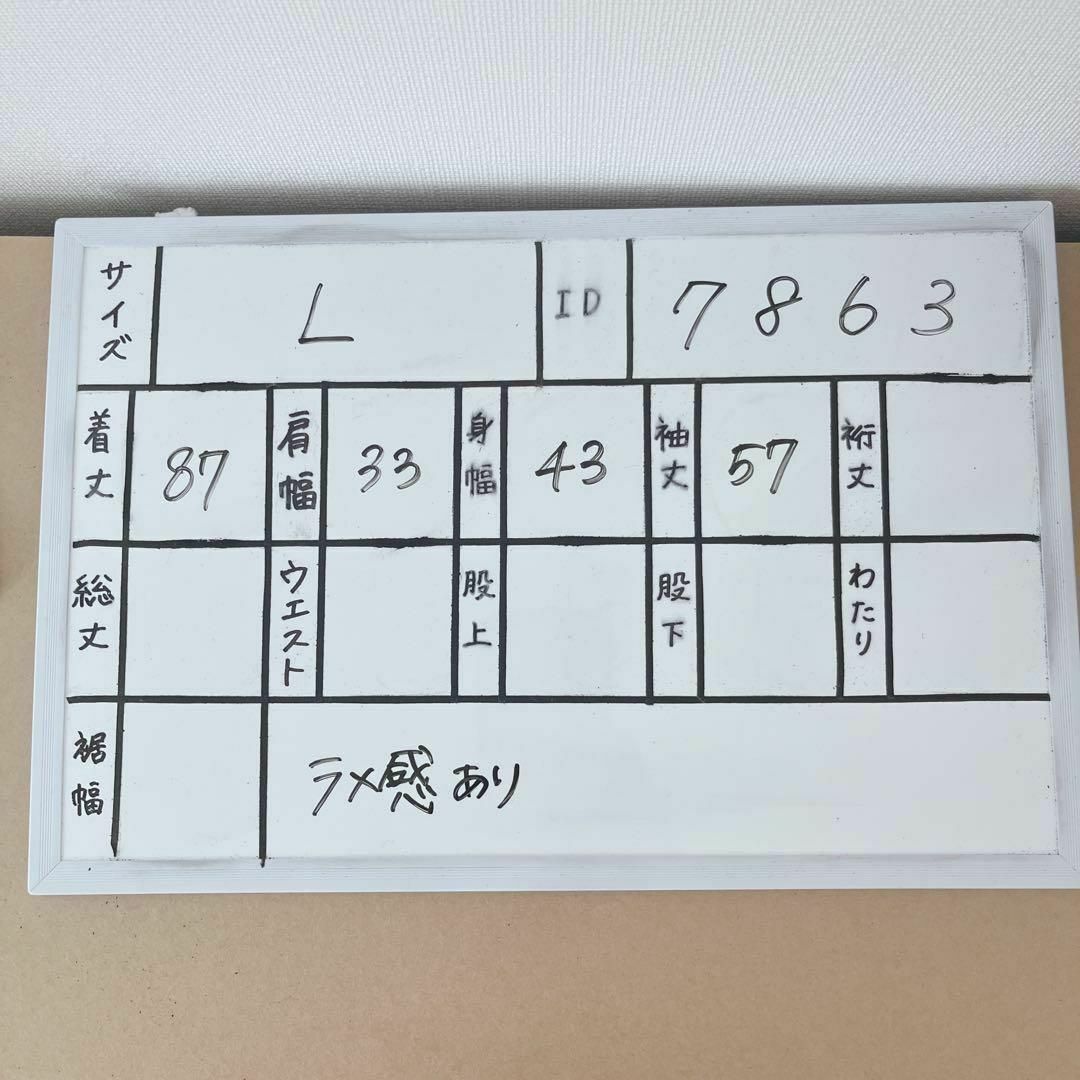 サイズ L ID 7863
着丈 87 肩幅 33 身幅 43 袖丈 57 裄丈
総丈 ウエスト 股上 股下 わたり
裾幅 ラメ感あり